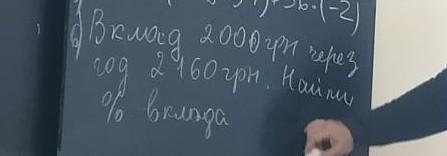 +5b·(-2)
б) Вклад 2000 грн через
год 2160 грн. Найти
% вклада